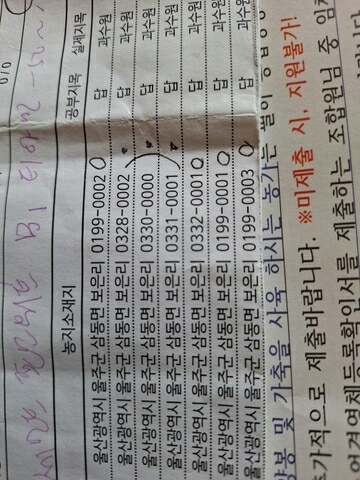 B1 티아민
농지소재지 공부지목 실제지목
울산광역시 울주군 삼동면 보은리 0199-0002 답 과수원
울산광역시 울주군 삼동면 보은리 0328-0002 답 과수원
울산광역시 울주군 삼동면 보은리 0330-0000 답 과수원
울산광역시 울주군 삼동면 보은리 0331-0001 답 과수원
울산광역시 울주군 삼동면 보은리 0332-0001 답 과수원
울산광역시 울주군 삼동면 보은리 0199-0001 답 과수원
울산광역시 울주군 삼동면 보은리 0199-0003 답 과수원
양봉 및 가축을 사육 하시는 농가는
추가적으로 제출바랍니다. ※미제출 시, 지원불가!
업경영체등록확인서를 제출하는 조합원님 중 임차